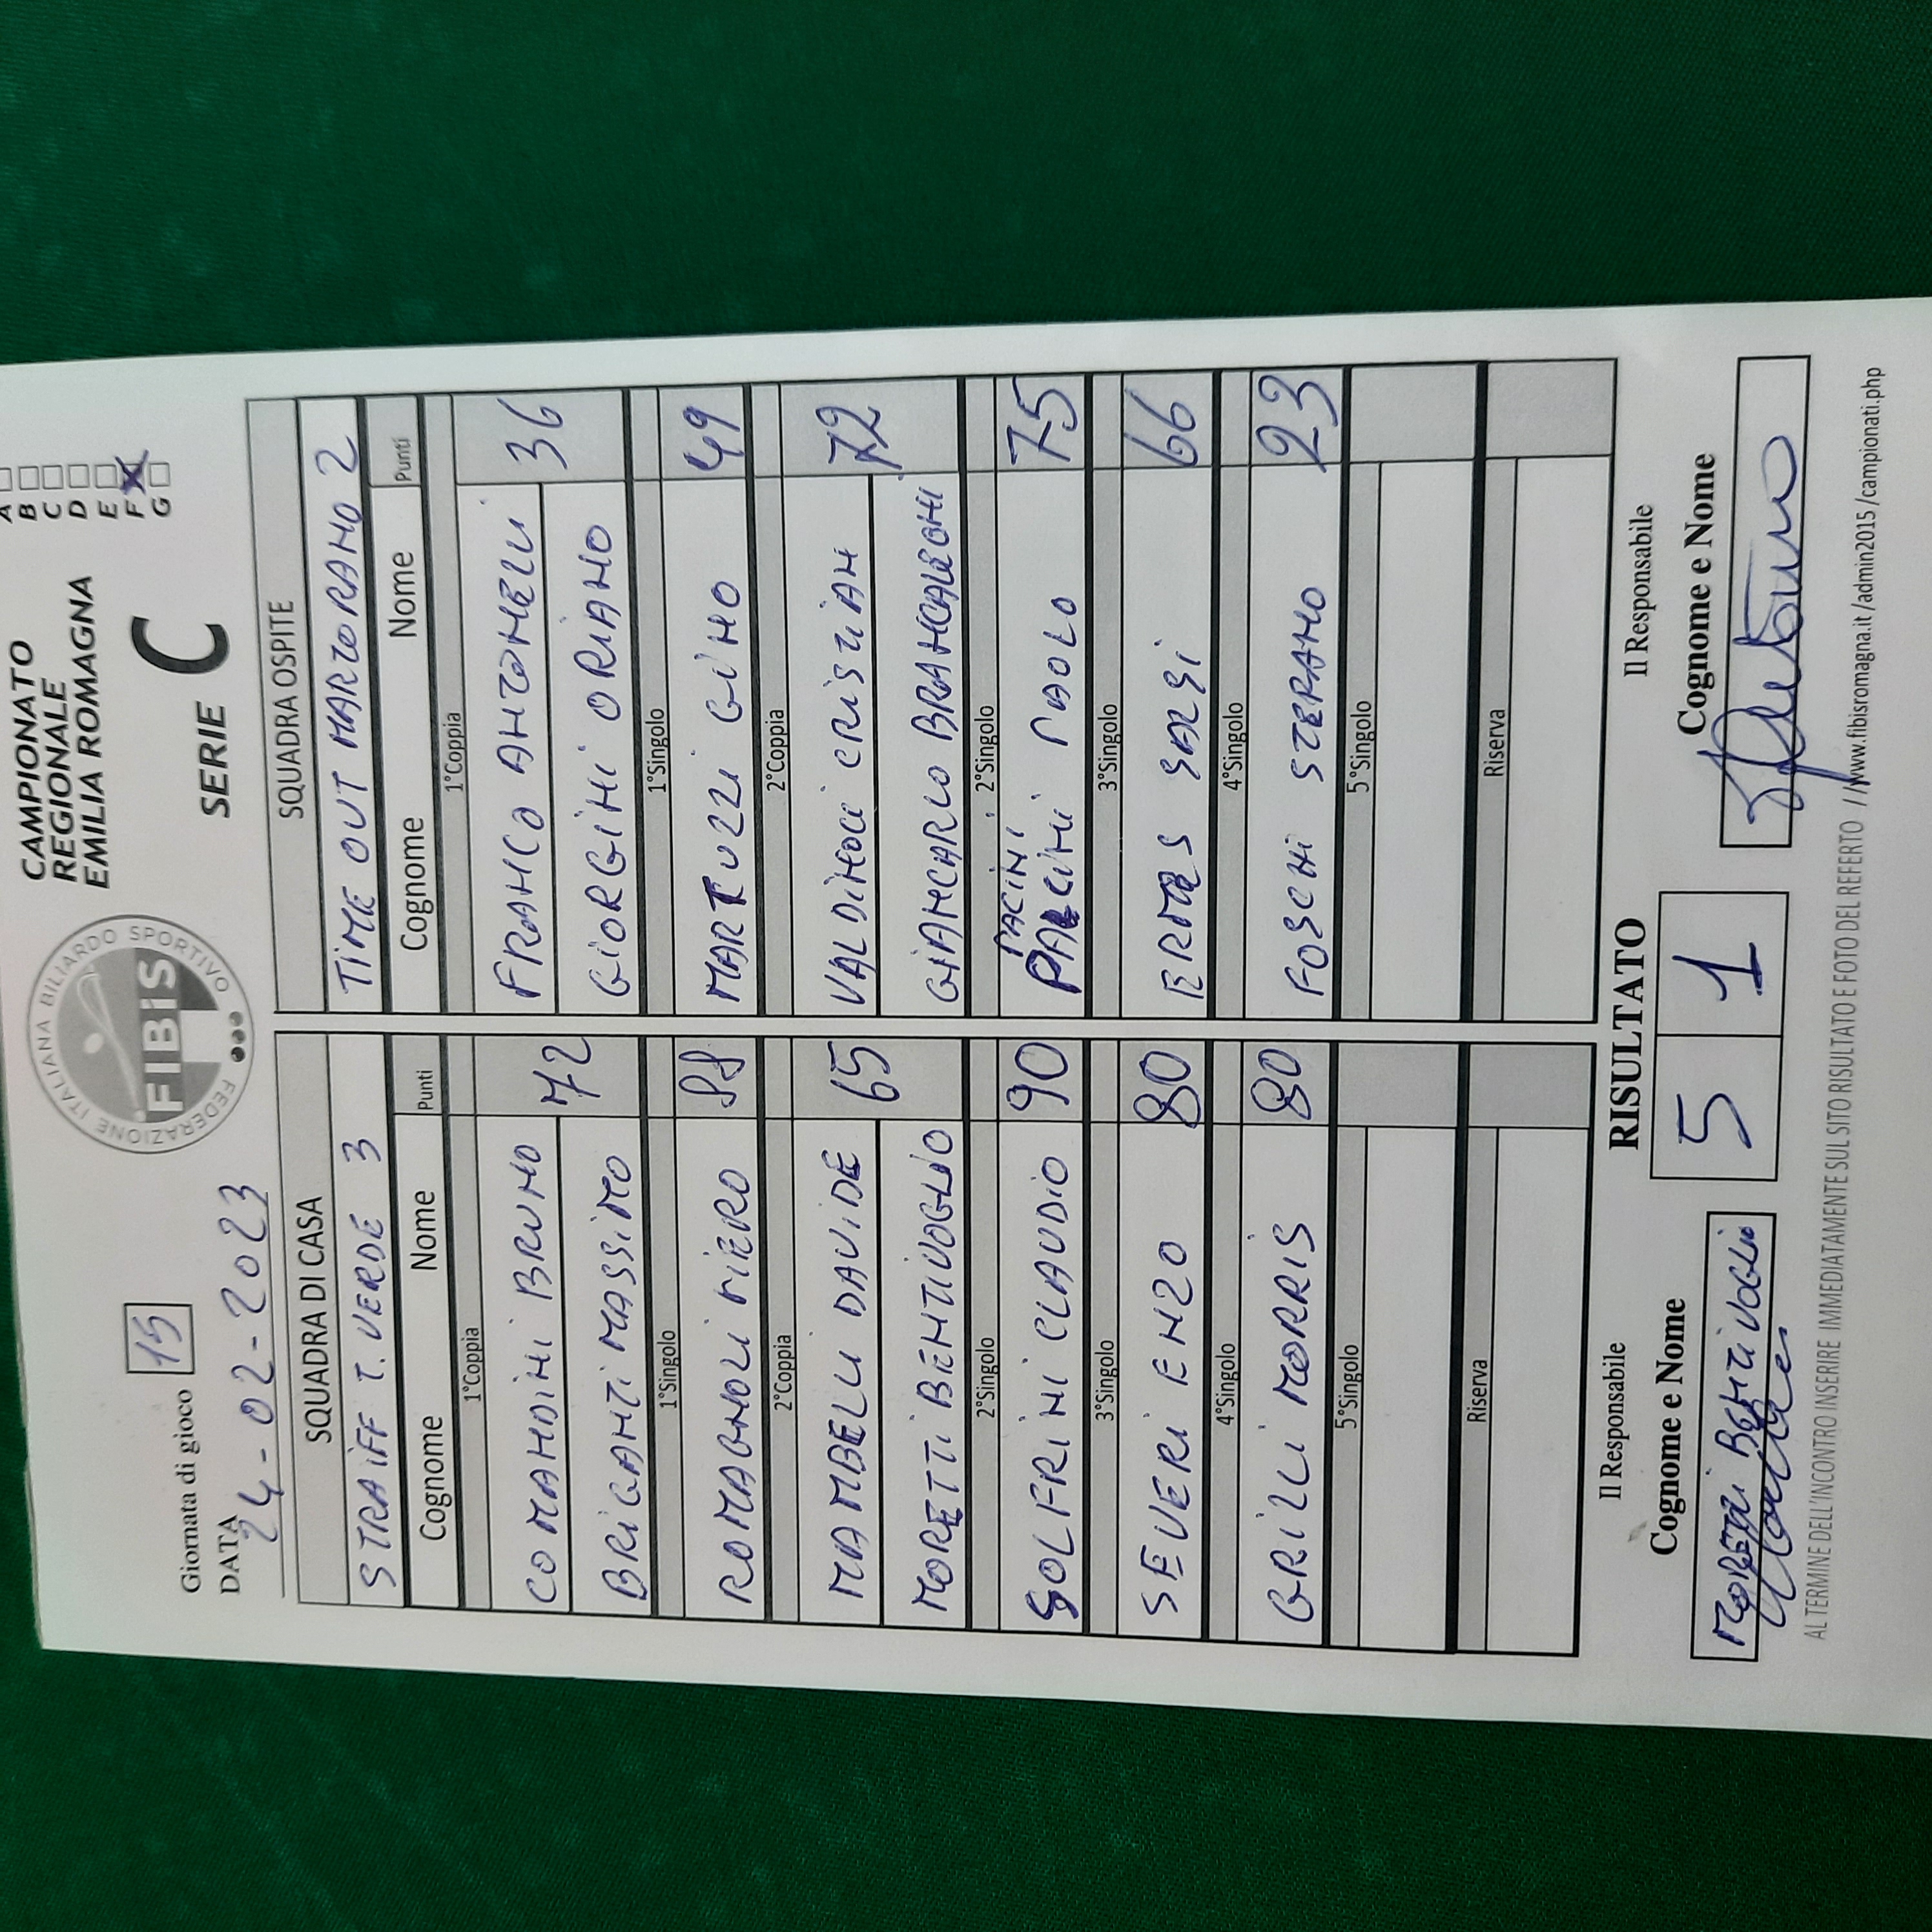 CAMPIONATO
REGIONALE
EMILIA ROMAGNA
SERIE C
A
B
C
D
E
F X
G
FEDERAZIONE ITALIANA BILIARDO SPORTIVO
FIBiS
Giornata di gioco 15
DATA 24-02-2023
SQUADRA DI CASA
STRAIFF T. VERDE 3
Cognome Nome Punti
1°Coppia
COMANDINI BRUNO
72
BRIGANTI MASSIMO
1°Singolo
ROMAGNOLI PIERO
2°Coppia
MAMBELLI DAVIDE
65
MORETTI BENTIVOGLIO
2°Singolo
GOLFRINI CLAUDIO 90
3°Singolo
SEVERI ENZO 80
4°Singolo
GRILLI MORRIS 80
5°Singolo
Riserva
SQUADRA OSPITE
TIME OUT MARTORANO 2
Cognome Nome Punti
1°Coppia
FRANCO ANTONELLI
36
GIORGINI ORIANO
1°Singolo
MARTUZZI GINO 49
2°Coppia
VALDINOCI CRISTIAN
72
GIANCARLO BRANCALEONI
2°Singolo
PACINI
PACINI PAOLO 75
3°Singolo
66
4°Singolo
FOSCHI STEFANO 23
5°Singolo
Riserva
RISULTATO
5 1
Il Responsabile
Cognome e Nome
MORETTI BENTIVOGLIO
Il Responsabile
Cognome e Nome
AL TERMINE DELL'INCONTRO INSERIRE IMMEDIATAMENTE SUL SITO RISULTATO E FOTO DEL REFERTO //www.fibisromagna.it /admin2015 /campionati.php